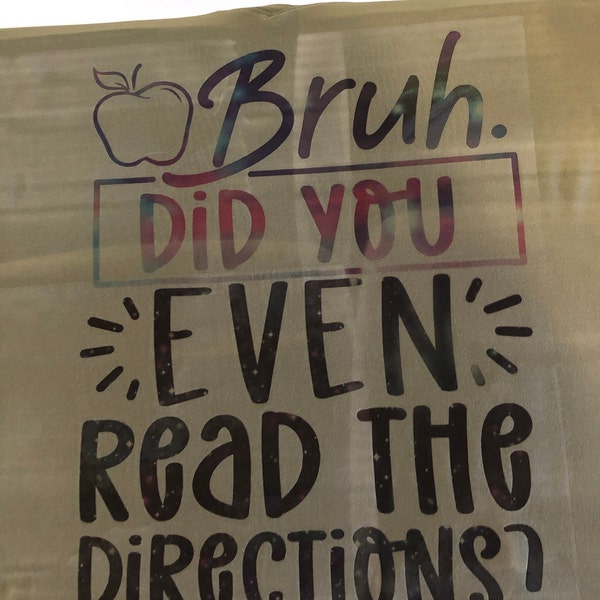 Bruh.
DiD YOU
EVEN
ReaD THe
DiRecTiONS?